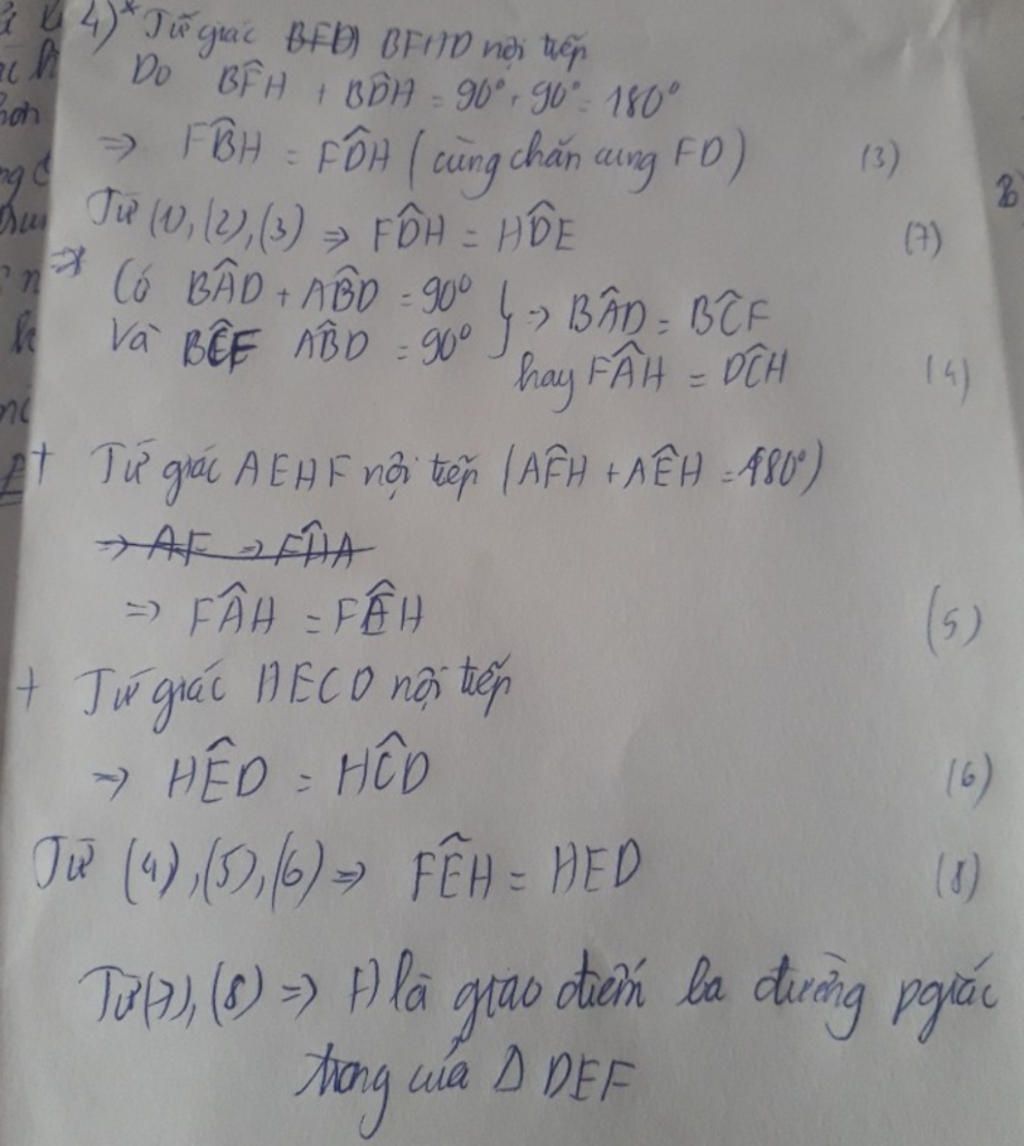 4)* Tứ giác BFHD nội tiếp
Do BF̂H + BD̂H = 90° + 90° = 180°
=> FB̂H = FD̂H (cùng chắn cung FD) (3)
Từ (1), (2), (3) => FD̂H = HD̂E (7)
=>* Có BÂD + AB̂D = 90°
Và BĈF AB̂D = 90°
} => BÂD = BĈF
hay FÂH = DĈH (4)
+ Tứ giác AEHF nội tiếp (AF̂H + AÊH = 180°)
=> FÂH = FÊH (5)
+ Tứ giác HECD nội tiếp
=> HÊD = HĈD (6)
Từ (4), (5), (6) => FÊH = HED (8)
Từ (7), (8) => H là giao điểm ba đường pgiác
trong của Δ DEF